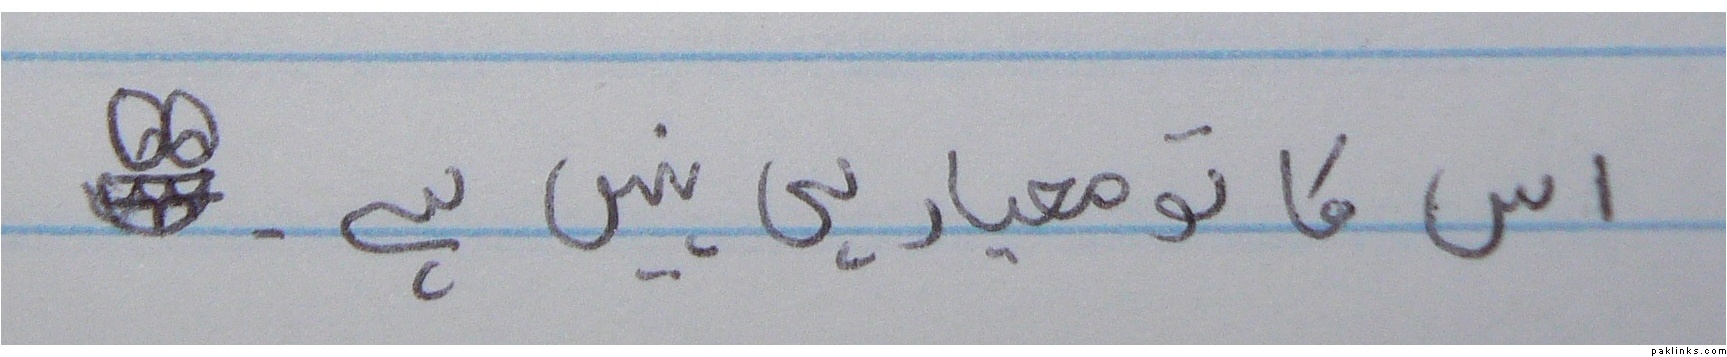 اس کا تو معیار ہی نہیں ہے ۔
paklinks.com